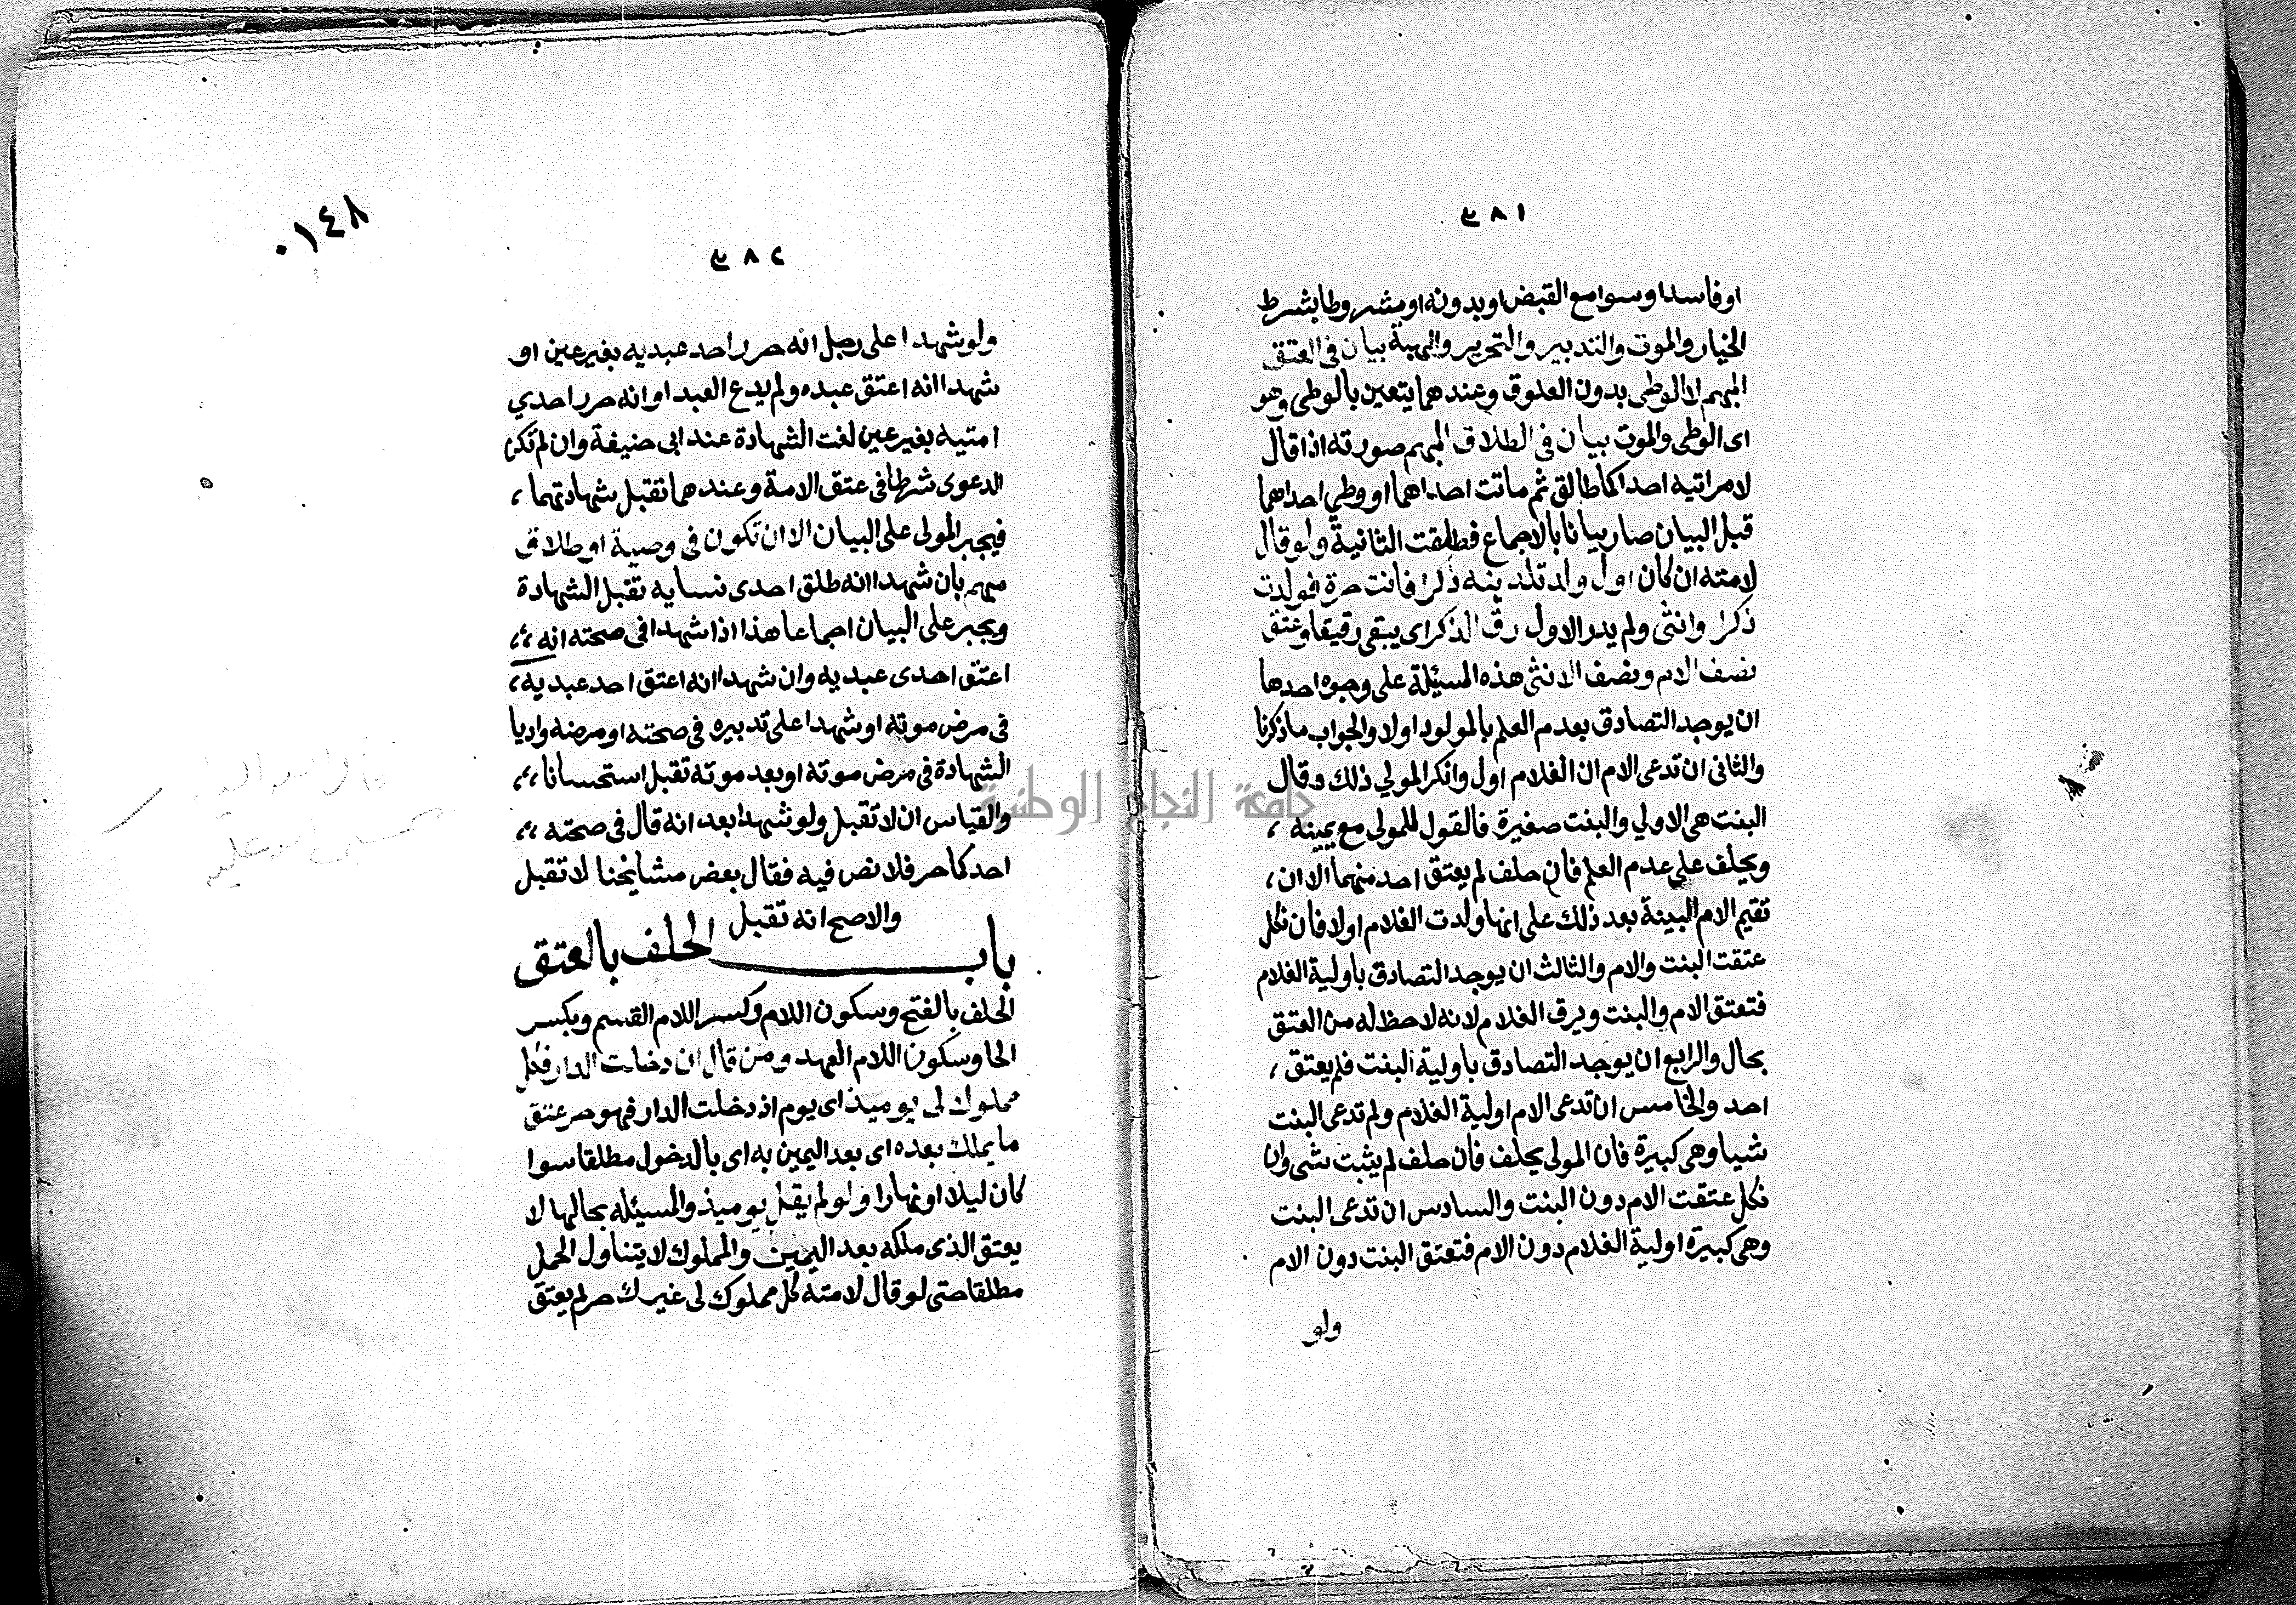 ٣٨١
او فاسدا وسوا مع القبض او بدونه او مشروطا بشرط
الخيار والموت والتدبير والتحرير والهبة بيان فى العتق
المبهم لا الوطى بدون العلوق وعندهما يتعين بالوطى وهو
اى الوطى والموت بيان فى الطلاق المبهم صورته اذا قال
لامراتيه احداكما طالق ثم ماتت احداهما او وطي احداهما
قبل البيان صار بيانا بالاجماع فطلقت الثانية ولو قال
لامته ان كان اول ولد تلدينه ذكرا فانت حرة فولدت
ذكرا وانثى ولم يدر الاول رق الذكر اى يبقى رقيقا وعتق
نصف الام ونصف الانثى هذه المسئلة على وجوه احدها
ان يوجد التصادق بعدم العلم بالمولود اولا والجواب ما ذكرنا
والثانى ان تدعى الام ان الغلام اول وانكر المولي ذلك وقال
البنت هى الاولي والبنت صغيرة فالقول للمولى مع يمينه ،
ويحلف على عدم العلم فان حلف لم يعتق احد منهما الا ان ،
تقيم الام البينة بعد ذلك على انها ولدت الغلام اولا فان نكل
عتقت البنت والام والثالث ان يوجد التصادق باولية الغلام
فتعتق الام والبنت ويرق الغلام لانه لاحظ له من العتق
بحال والرابع ان يوجد التصادق باولية البنت فلم يعتق ،
احد والخامس ان تدعى الام اولية الغلام ولم تدعى البنت
شيا وهى كبيرة فان المولى يحلف فان حلف لم يثبت شى وان
نكل عتقت الام دون البنت والسادس ان تدعى البنت
وهى كبيرة اولية الغلام دون الام فتعتق البنت دون الام
ولو
٠١٤٨
٣٨٢
ولو شهدا على رجل انه حرر احد عبديه بغير عين او
شهدا انه اعتق عبده ولم يدع العبد او انه حرر احدي
امتيه بغير عين لغت الشهادة عند ابى حنيفة وان لم تكن
الدعوى شرطا فى عتق الامة وعندهما تقبل شهادتهما ،
فيجبر المولى على البيان الا ان تكون فى وصية او طلاق
مبهم بان شهدا انه طلق احدى نسايه تقبل الشهادة
ويجبر على البيان اجماعا هذا اذا شهدا فى صحته انه ،،
اعتق احدى عبديه وان شهدا انه اعتق احد عبديه ،
فى مرض موته او شهدا على تدبيره فى صحته او مرضه واديا
الشهادة فى مرض موته او بعد موته تقبل استحسانا ،،
والقياس ان لا تقبل ولو شهدا بعد انه قال فى صحته ،،
احدكما حر فلا نص فيه فقال بعض مشايخنا لا تقبل
والاصح انه تقبل
باب الحلف بالعتق
الحلف بالفتح وسكون اللام وكسر اللام القسم وبكسر
الحا وسكون اللام العهد ومن قال ان دخلت الدار فكل
مملوك لى يوميذ اى يوم اذ دخلت الدار فهو حر عتق
ما يملك بعده اى بعد اليمين به اى بالدخول مطلقا سوا
كان ليلا او نهارا ولو لم يقل يوميذ والمسئله بحالها لا
يعتق الذى ملكه بعد اليمين والمملوك لا يتناول الحمل
مطلقا حتى لو قال لامته كل مملوك لى غيرك حر لم يعتق
جامعة النجاح الوطنية